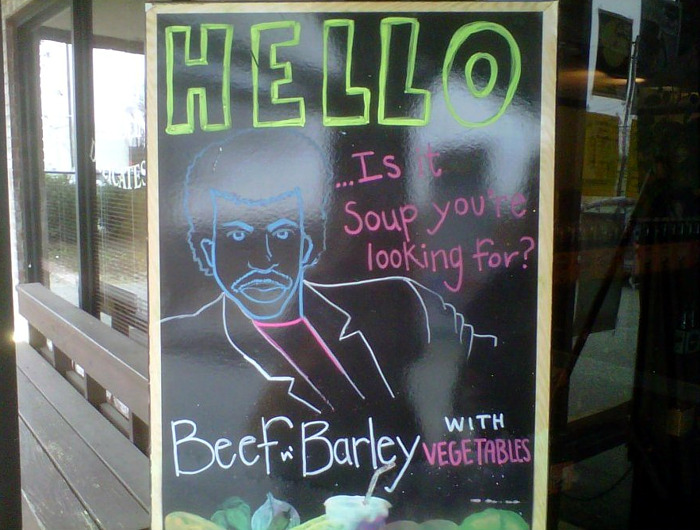 HELLO
...Is it
Soup you're
looking for?
Beef n' Barley
WITH
VEGETABLES